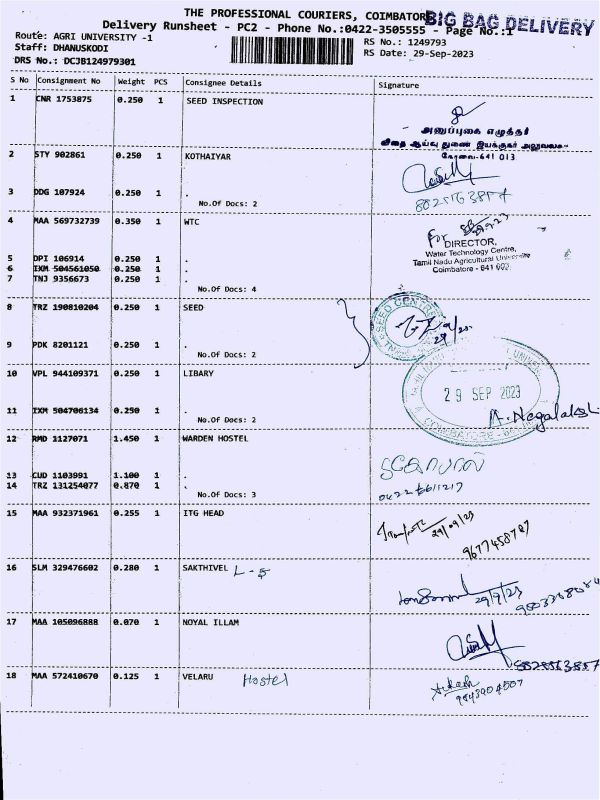 THE PROFESSIONAL COURIERS, COIMBATORE
BIG BAG DELIVERY
Delivery Runsheet - PC2 - Phone No.:0422-3505555 - Page No.:1
Route: AGRI UNIVERSITY -1
RS No.: 1249793
Staff: DHANUSKODI
RS Date: 29-Sep-2023
DRS No.: DCJB124979301
S No Consignment No Weight PCS Consignee Details Signature
1 CNR 1753875 0.250 1 SEED INSPECTION
அனுப்புகை எழுத்தர்
விதை ஆய்வு துணை இயக்குநர் அலுவலகம்
கோவை-641 013
2 STY 902861 0.250 1 KOTHAIYAR
3 DDG 107924 0.250 1 .
No.Of Docs: 2
4 MAA 569732739 0.350 1 WTC
For
DIRECTOR,
Water Technology Centre,
Tamil Nadu Agricultural University
Coimbatore - 641 003
5 DPI 106914 0.250 1 .
6 IXM 504561050 0.250 1 .
7 TNJ 9356673 0.250 1 .
No.Of Docs: 4
8 TRZ 190810204 0.250 1 SEED
SEED CENTRE
9 PDK 8201121 0.250 1 .
No.Of Docs: 2
10 VPL 944109371 0.250 1 LIBARY
29 SEP 2023
11 IXM 504706134 0.250 1 .
No.Of Docs: 2
12 RMD 1127071 1.450 1 WARDEN HOSTEL
13 CUD 1103991 1.100 1 .
14 TRZ 131254077 0.870 1 .
No.Of Docs: 3
15 MAA 932371961 0.255 1 ITG HEAD
29/09/23
9677458787
16 SLM 329476602 0.280 1 SAKTHIVEL
29/9/23
17 MAA 105096888 0.070 1 NOYAL ILLAM
18 MAA 572410670 0.125 1 VELARU Hostel